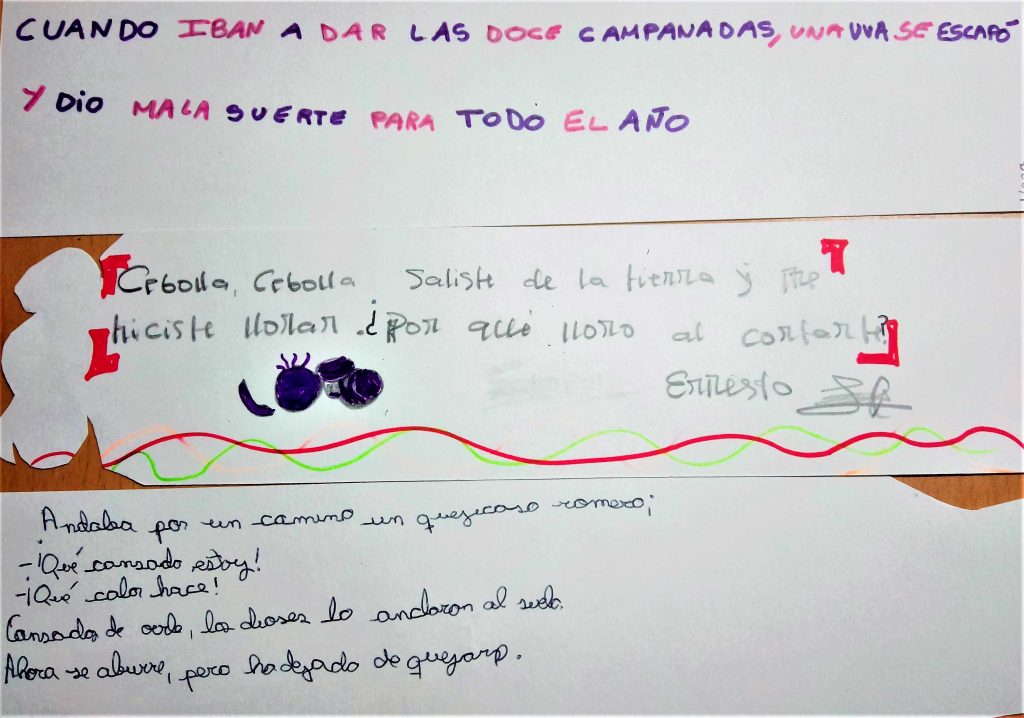 CUANDO IBAN A DAR LAS DOCE CAMPANADAS, UNA UVA SE ESCAPÓ
Y DIO MALA SUERTE PARA TODO EL AÑO
Cebolla, Cebolla Saliste de la tierra y me
hiciste llorar. ¿Por qué lloro al cortarte?
Ernesto
Andaba por un camino un quejicoso romero;
-¡Qué cansado estoy!
-¡Qué calor hace!
Cansados de oírlo, los dioses lo anclaron al suelo.
Ahora se aburre, pero ha dejado de quejarse.